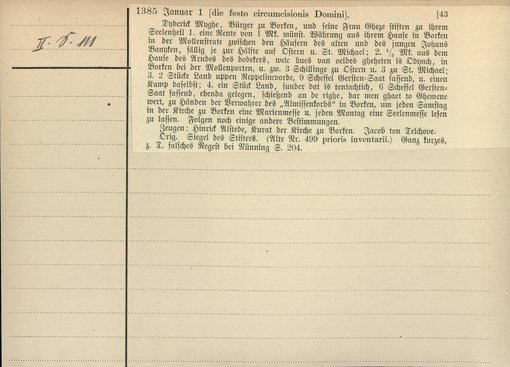 1385 Januar 1 [die festo circumcisionis Domini]. [43
Dyderick Myghe, Bürger zu Borken, und seine Frau Gheze stiften zu ihrem
Seelenheil 1. eine Rente von 1 Mk. münst. Währung aus ihrem Hause in Borken
in der Mollenstrate zwischen den Häusern des alten und des jungen Johans
fällig je zur Hälfte auf Ostern u. St. Michael; 2. ½ Mk. aus dem
Hause des Arndes des bodekers, welc hues van oeldes gheheten is Odynch, in
Borken bei der Mollenporten, u. zw. 3 Schillinge zu Ostern u. 3 zu St. Michael;
3. 2 Stücke Land uppen 9 Scheffel Gersten-Saat fassend, u. einen
Kamp daselbst; 4. ein Stück Land, sunder dat is tentachtich, 6 Scheffel Gersten-
Saat fassend, ebenda gelegen, schietend an de righe, dar men ghaet to Ghemene
wert, zu Händen der Verwahrer des „Almissenkorbs" in Borken, um jeden Samstag
in der Kirche zu Borken eine Marienmesse u. jeden Montag eine Seelenmesse lesen
zu lassen. Folgen noch einige andere Bestimmungen.
Zeugen: Hinrick Alstede, Kurat der Kirche zu Borken. Jacob ton Telchove.
Orig. Siegel des Stifters. (Alte Nr. 499 prioris inventarii.) Ganz kurzes,
z. T. falsches Regest bei Nünning S. 204.